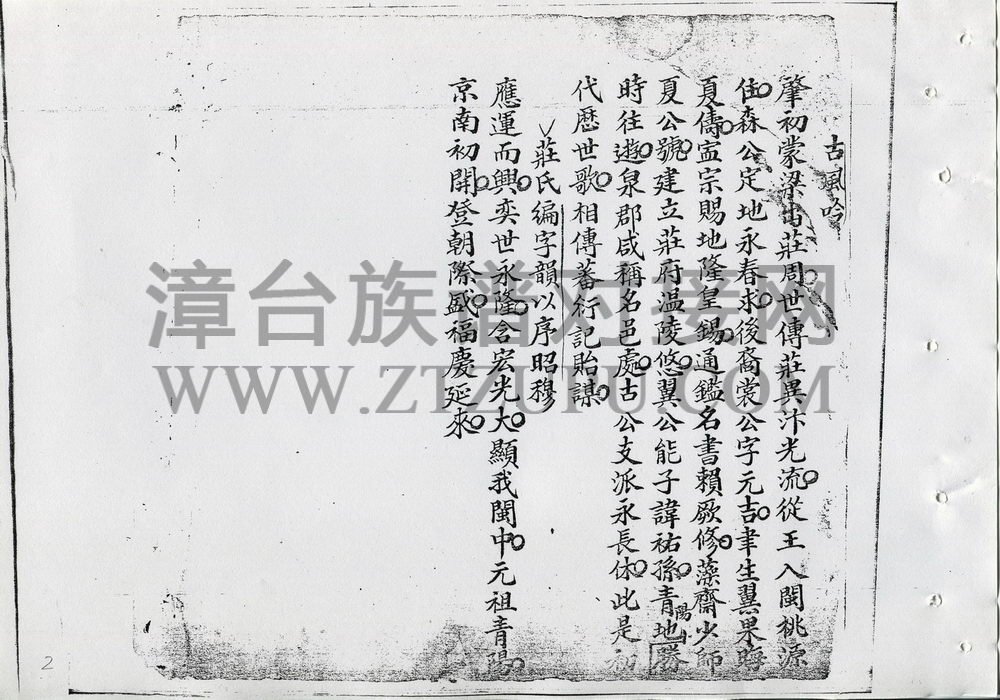 古風吟
肇初蒙梁出莊周世傳莊異汴光流從王入閩桃源
住森公定地永春求後裔裳公字元吉聿生翼果晦
夏儔寍宗賜地隆皇錫通鑑名書賴厥修藻齋少師
夏公號建立莊府溫陵悠翼公能子諱祐孫青地勝
陽山
時往遊泉郡咸稱名邑處古公支派永長休此是初
代歷世歌相傳蕃衍記貽謀
莊氏編字韻以序昭穆
應運而興奕世永隆含宏光大顯我閩中元祖青陽
京南初開登朝際盛福慶延來
漳台族谱对接网
WWW.ZTZUPU.COM
2